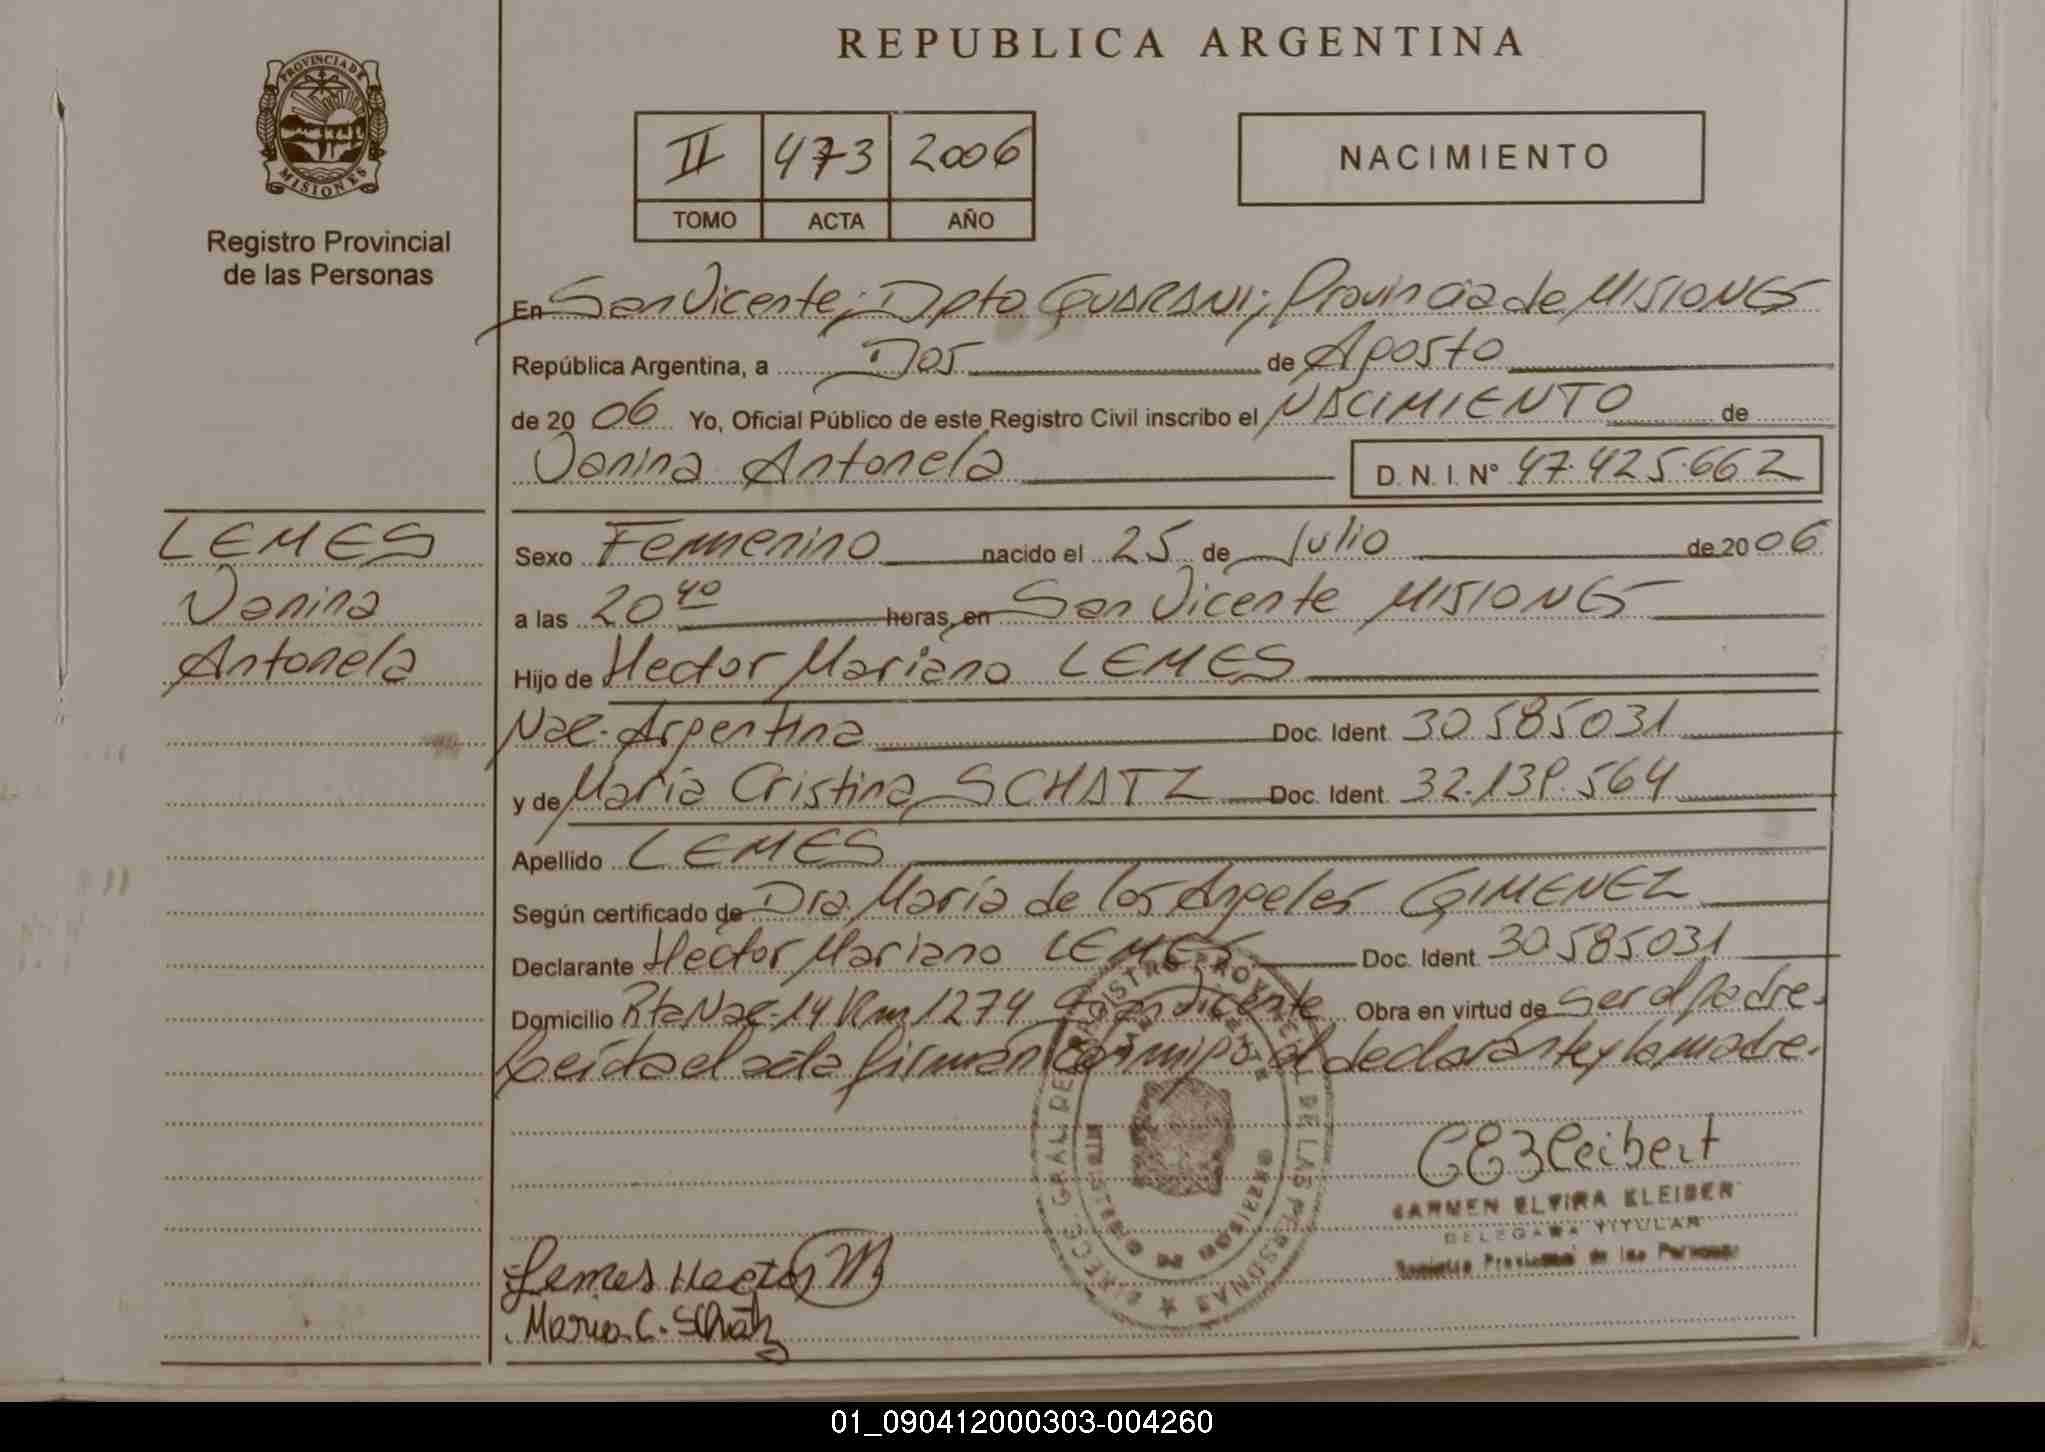 REPUBLICA ARGENTINA
PROVINCIA DE
MISIONES
Registro Provincial
de las Personas
II 473 2006
TOMO ACTA AÑO
NACIMIENTO
En San Vicente; Dpto GUARANI; Provincia de MISIONES
República Argentina, a Dos de Agosto
de 2006 Yo, Oficial Público de este Registro Civil inscribo el NACIMIENTO de
Vanina Antonela D. N. I. N° 47.425.662
LEMES
Vanina
Antonela
Sexo Femenino nacido el 25 de Julio de 2006
a las 20 40 horas, en San Vicente MISIONES
Hijo de Hector Mariano LEMES
Nac. Argentina Doc. Ident. 30.585031
y de María Cristina SCHATZ Doc. Ident. 32.139.564
Apellido LEMES
Según certificado de Dra. María de los Angeles GIMENEZ
Declarante Hector Mariano LEMES Doc. Ident. 30.585.031
Domicilio Rta Nac. 14 Km 1274 San Vicente Obra en virtud de ser el padre.
Leída el acta firman conmigo el declarante y la madre.
CARMEN ELVIRA KLEIBER
DELEGADA TITULAR
Registro Provincial de las Personas
Lemes Hector M
Maria C. Schatz
01_090412000303-004260